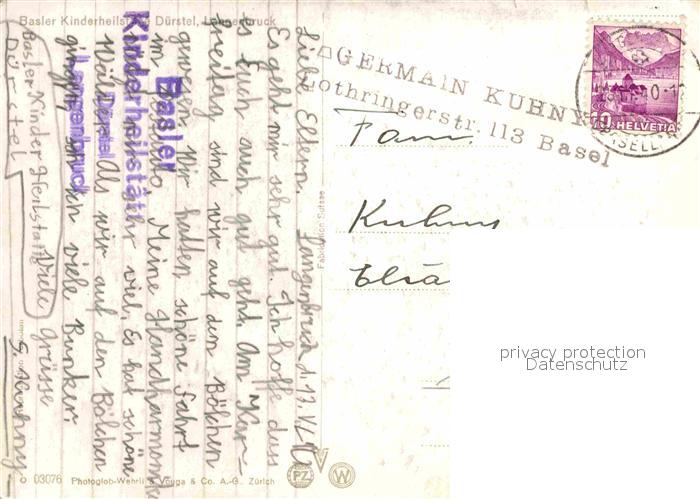 Basler Kinderheilstätte Dürstel, Langenbruck
Langenbruck d. 13. VI.
Liebe Eltern.
Es geht mir sehr gut. Ich hoffe dass
es Euch auch gut geht. Am
Freitag sind wir auf dem Bölchen
gewesen Wir hatten schöne Fahrt
im Meine Handharmonika
viel. Es hat schöne
Als wir auf den Bölchen
gingen viele Bunker.
Viele Grüsse
G. Kuhny
Basler Kinder Heilstätte
Dürstel
Basler
Kinderheilstätte
Dürstel
Langenbruck
GERMAIN KUHNY
Lothringerstr. 113 Basel
Fam.
Kuhny
Elsä
10 HELVETIA
Fabrication Suisse
03076 Photoglob-Wehrli & Vouga & Co. A.-G., Zürich
PZ
W
privacy protection
Datenschutz